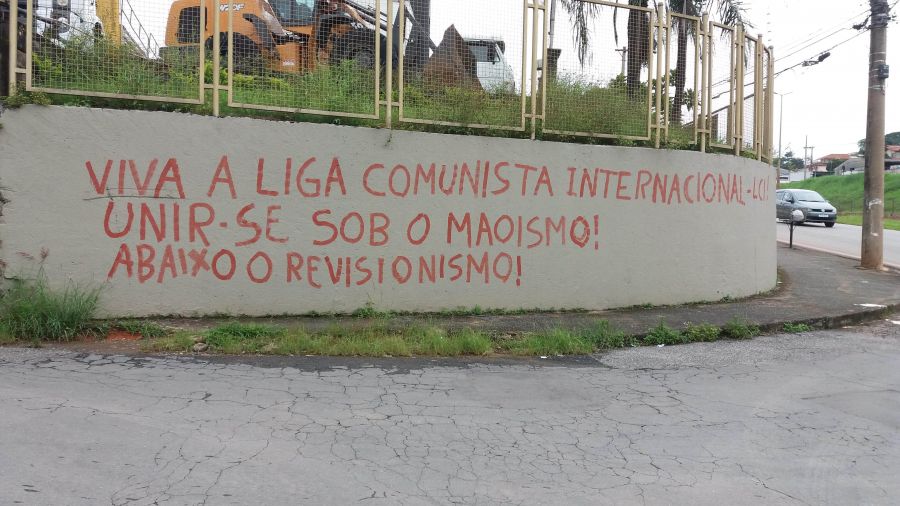 VIVA A LIGA COMUNISTA INTERNACIONAL-LCI!
UNIR-SE SOB O MAOISMO!
ABAIXO O REVISIONISMO!